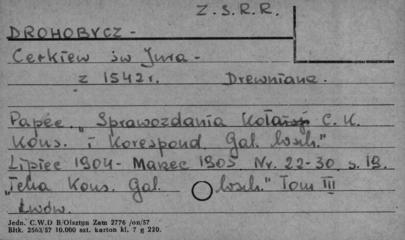 Z.S.R.R.
DROHOBYCZ -
Cerkiew św Jura -
z 1542 r. Drewniana.
Papée. "Sprawozdania C. K.
Kons. i Korespond. Gal. wsch."
Lipiec 1904 - Marzec 1905. Nr. 22-30 s. 19.
"Teka Kons. Gal. wsch." Tom III
Lwów.
Jedn. C.W.D B/Olsztyn Zam 2776 /on/57
Błtk. 2563/57 10.000 szt. karton kl. 7 g 220.